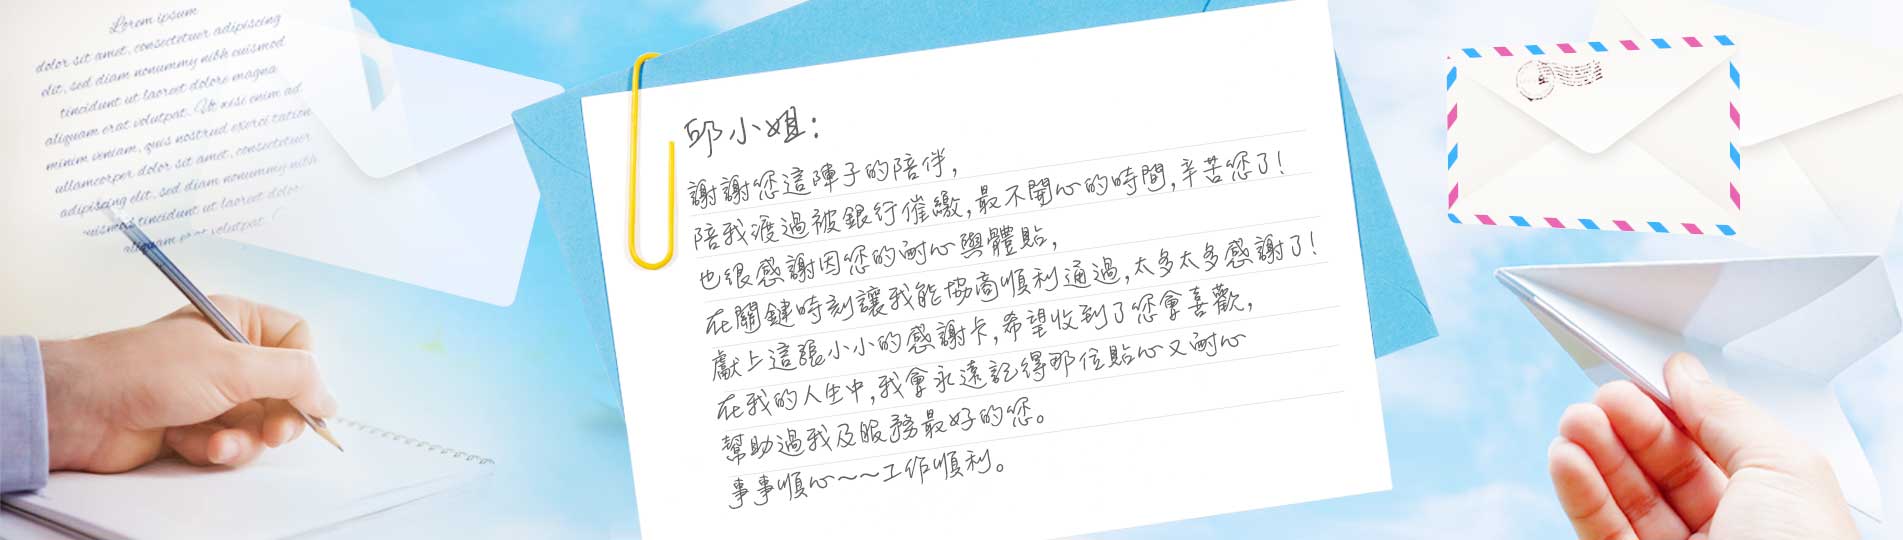 Lorem ipsum
dolor sit amet, consectetuer adipiscing
elit, sed diam nonummy nibh euismod
tincidunt ut laoreet dolore magna
aliquam erat volutpat. Ut wisi enim ad
minim veniam, quis nostrud exerci tation
ullamcorper dolor sit amet, consectetuer
adipiscing elit, sed diam nonummy nibh
euismod tincidunt ut laoreet dolor
aliquam erat volutpat.
邱小姐：
謝謝您這陣子的陪伴，
陪我渡過被銀行催繳，最不開心的時間，辛苦您了！
也很感謝因您的耐心與體貼，
在關鍵時刻讓我能協商順利通過，太多太多感謝了！
獻上這張小小的感謝卡，希望收到了您會喜歡，
在我的人生中，我會永遠記得那位貼心又耐心
幫助過我及服務最好的您。
事事順心～～工作順利。